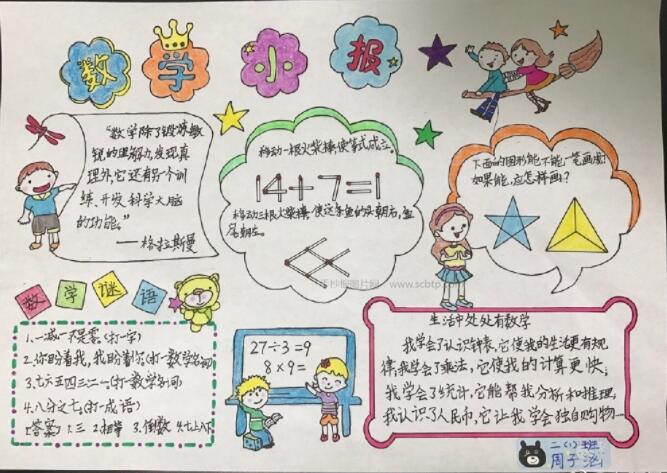 数学小报
“数学除了锻炼敏
锐的理解力,发现真
理外,它还有另一个训
练、开发科学大脑
的功能。”
——格拉斯曼
移动一根火柴棒使等式成立。
14+7=1
移动三根火柴棒,使这条鱼的头朝右,鱼
尾朝左。
下面的图形能不能一笔画成?
如果能,应怎样画?
数学谜语
1.一减一不是零(打一字)
2.你盼着我,我盼着你(打一数学名词)
3.七六五四三二一(打一数学名词)
4.八分之七(打一成语)
[答案]1.三 2.相等 3.倒数 4.七上八下
27÷3=9
8×9=
生活中处处有数学
我学会了认识钟表,它使我的生活更有规
律,我学会了乘法,它使我的计算更快;
我学会了统计,它能帮我分析和推理,
我认识了人民币,它让我学会独自购物…
二(1)班
周子涵
www.scbtp.com